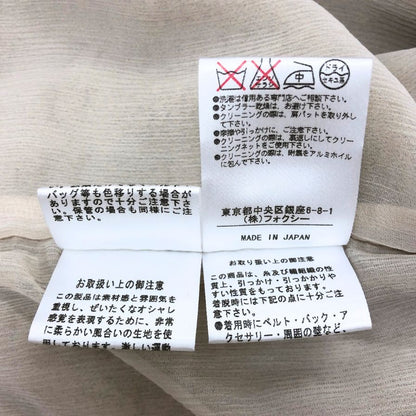 エンソサラシ
中
ドライ
セキユ系
●洗濯は信用ある専門店へご相談下さい。
●タンブラー乾燥は、お避け下さい。
●クリーニングの際は、肩パットを取り外して下さい。
●摩擦や引っかけに、ご注意下さい。
●クリーニングの際は、裏返しにしてクリーニングネットをご使用下さい。
●クリーニングの際は、附属をアルミホイルに包んで下さい。
東京都中央区銀座6-8-1
(株)フォクシー
MADE IN JAPAN
バッグ等も色移りする場合が
ありますので十分ご注意下さ
い。保管の場合も同様にご注
意下さい。
お取扱い上の御注意
この製品は素材感と雰囲気を
重視し、ぜいたくなオシャレ
感覚を表現するために、非常
に柔らかい風合いの生地を使
用しております。激しい運動
お取り扱い上の御注意
この商品は、品及び繊組織の性
質上、引っかけ・引っかかりや
すい性質をもっております。
着脱時には下記の点に十分ご注
意下さい。
●着用時にベルト・バック・ア
クセサリー・周囲の壁など、